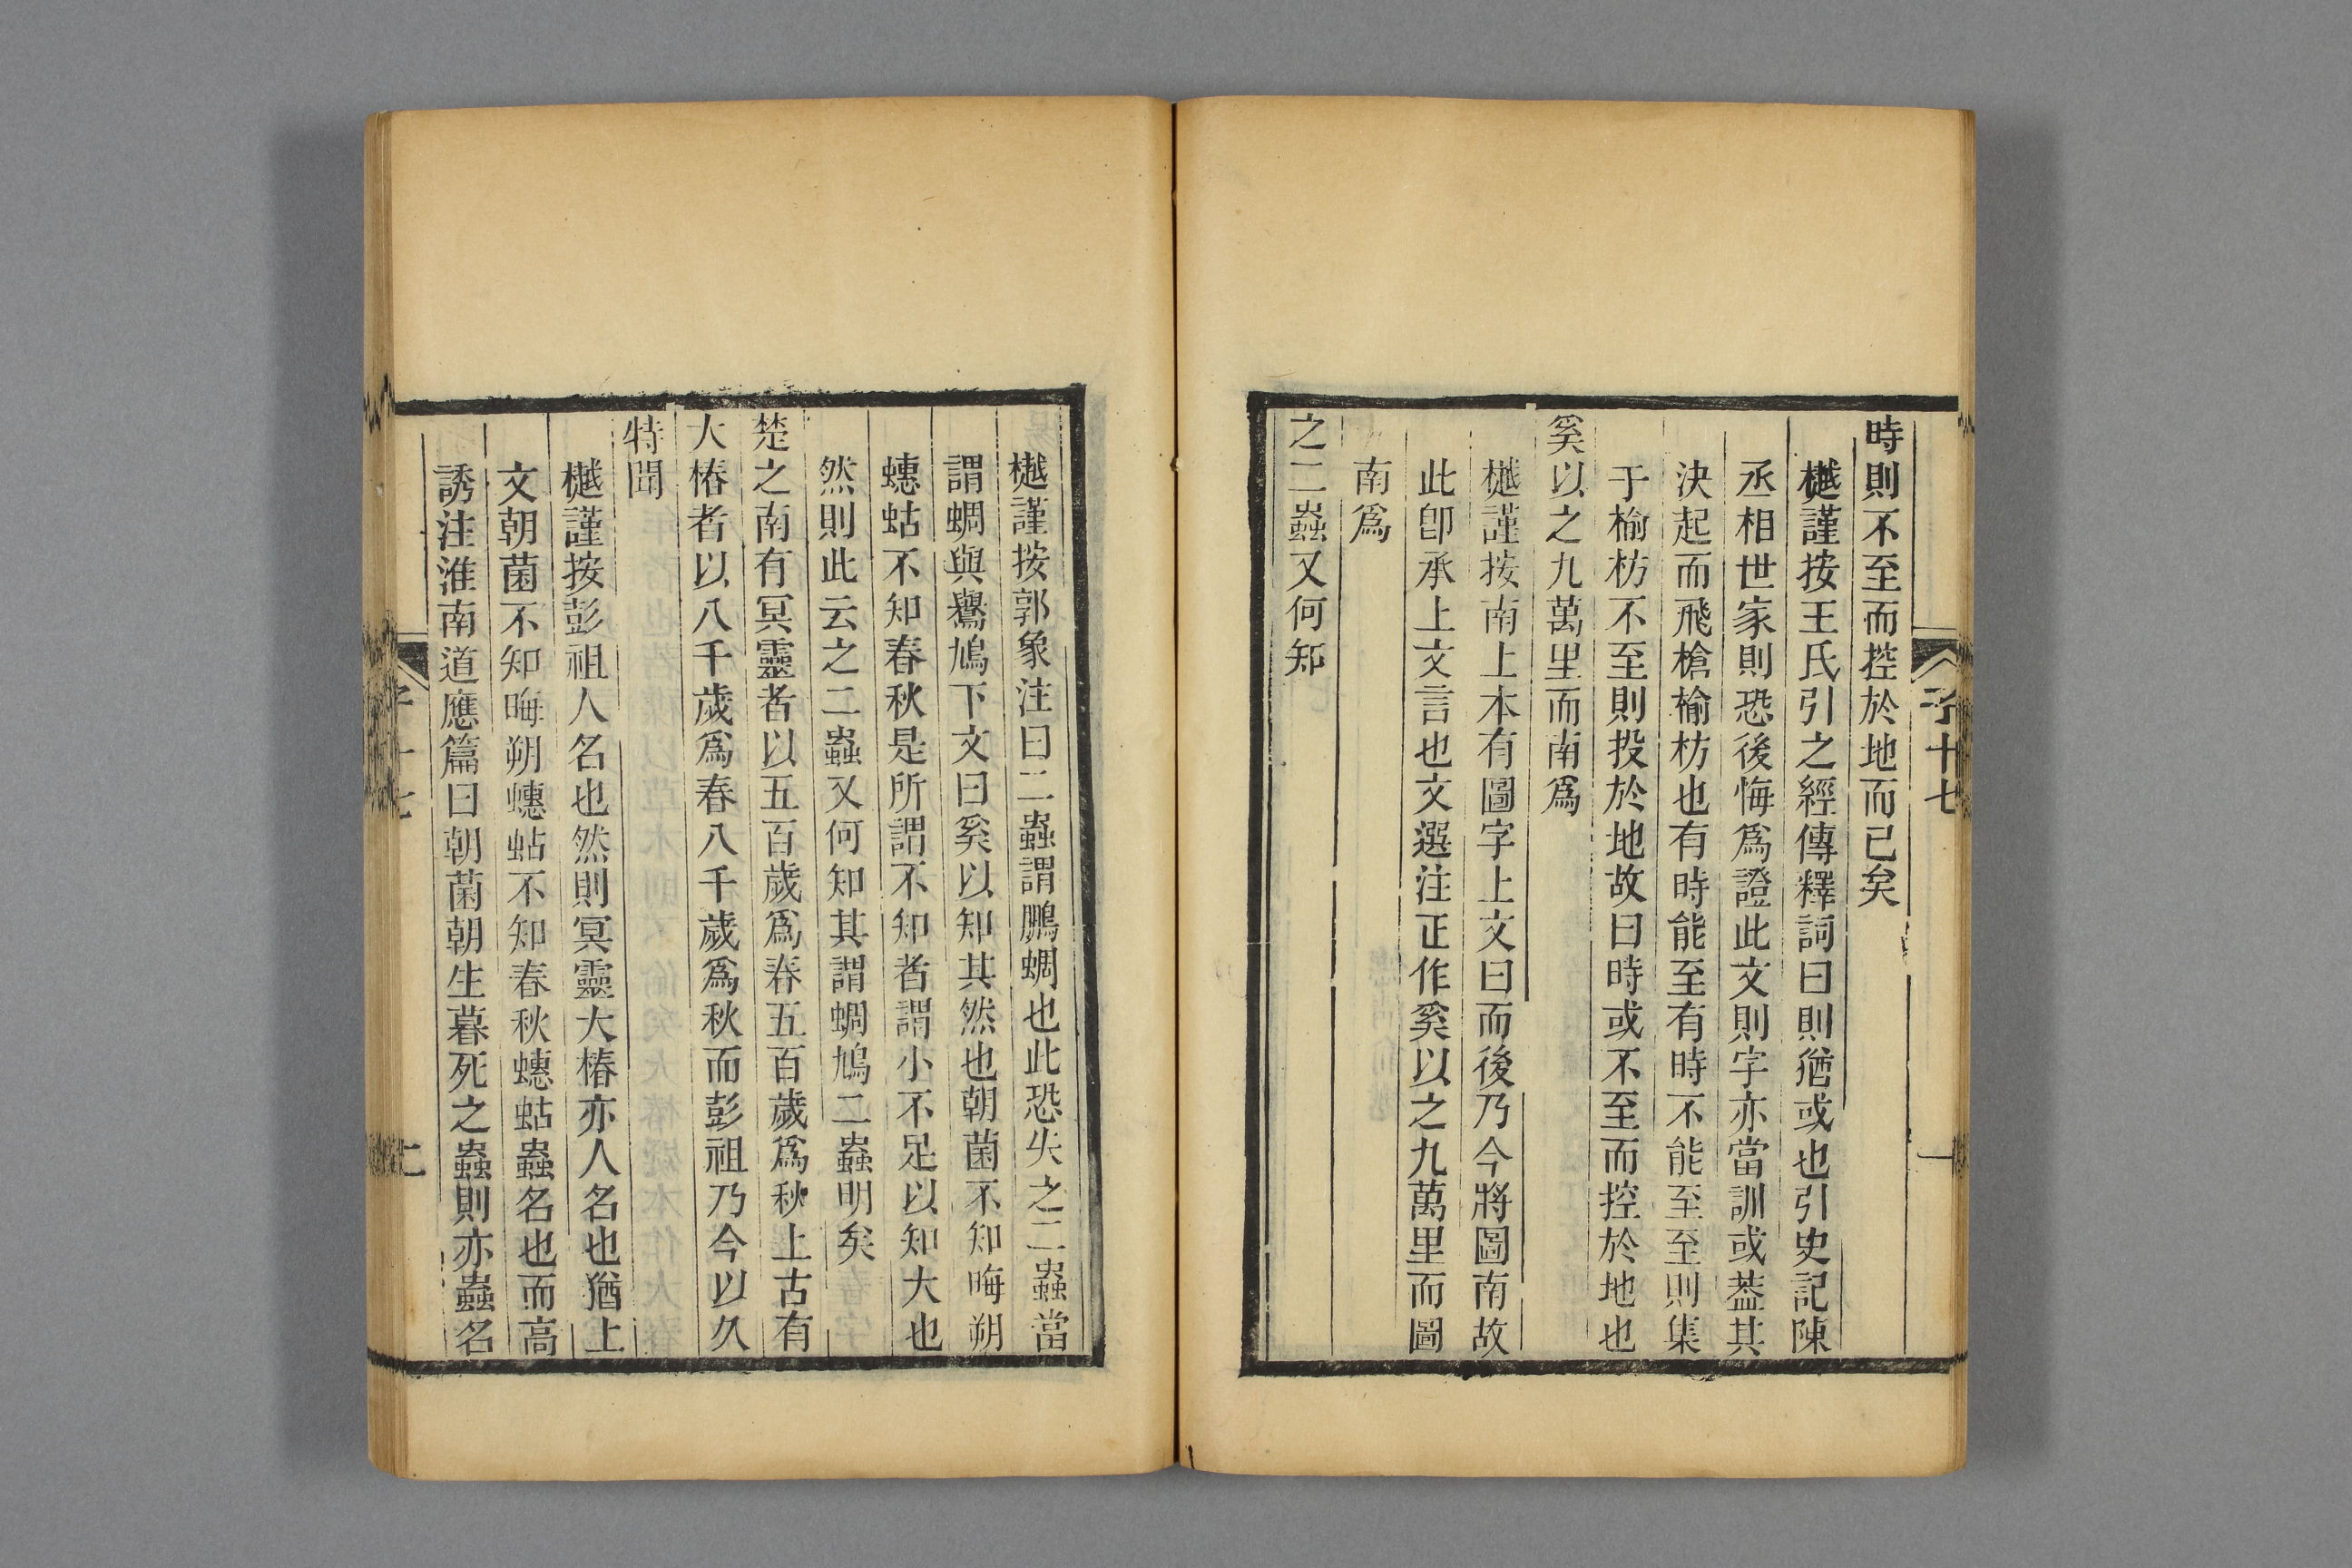 時則不至而控於地而已矣
樾謹按王氏引之經傳釋詞曰則猶或也引史記陳
丞相世家則恐後悔爲證此文則字亦當訓或葢其
決起而飛槍榆枋也有時能至有時不能至至則集
于榆枋不至則投於地故曰時或不至而控於地也
奚以之九萬里而南爲
樾謹按南上本有圖字上文曰而後乃今將圖南故
此卽承上文言也文選注正作奚以之九萬里而圖
南爲
之二蟲又何知
子十七
一
樾謹按郭象注曰二蟲謂鵬蜩也此恐失之二蟲當
謂蜩與鷽鳩下文曰奚以知其然也朝菌不知晦朔
蟪蛄不知春秋是所謂不知者謂小不足以知大也
然則此云之二蟲又何知其謂蜩鳩二蟲明矣
楚之南有冥靈者以五百歲爲春五百歲爲秋上古有
大椿者以八千歲爲春八千歲爲秋而彭祖乃今以久
特聞
樾謹按彭祖人名也然則冥靈大椿亦人名也猶上
文朝菌不知晦朔蟪蛄不知春秋蟪蛄蟲名也而高
誘注淮南道應篇曰朝菌朝生暮死之蟲則亦蟲名
子十七